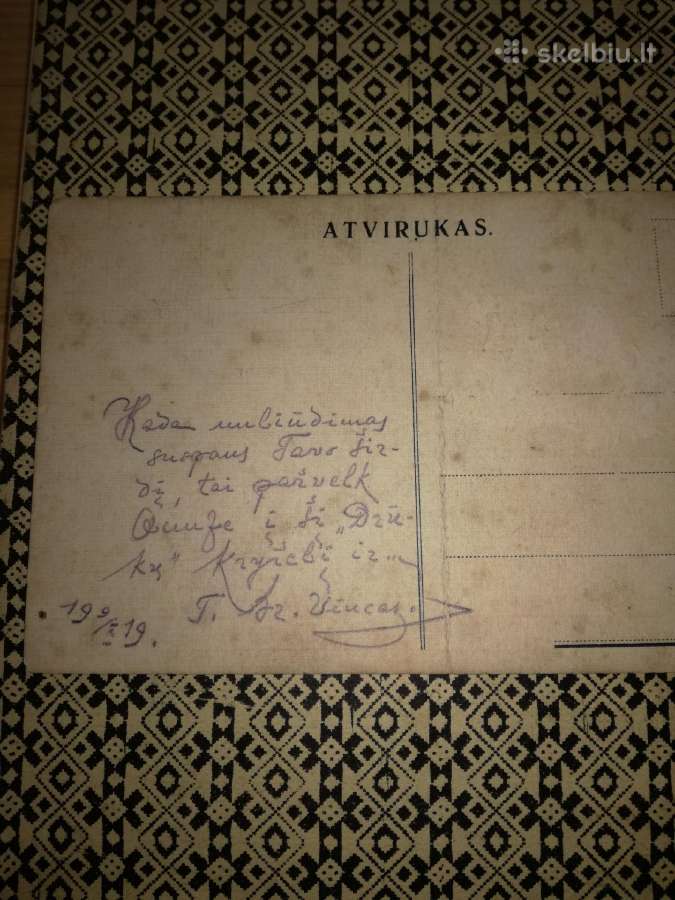 skelbiu.lt
ATVIRUKAS.
Kada nubiūdimas
suspaus Tavo šir-
dį, tai pažvelk
į šį „Dzū-
kų" Kryželį ir...
T. Br. Vincas.
19 9/IX 19.